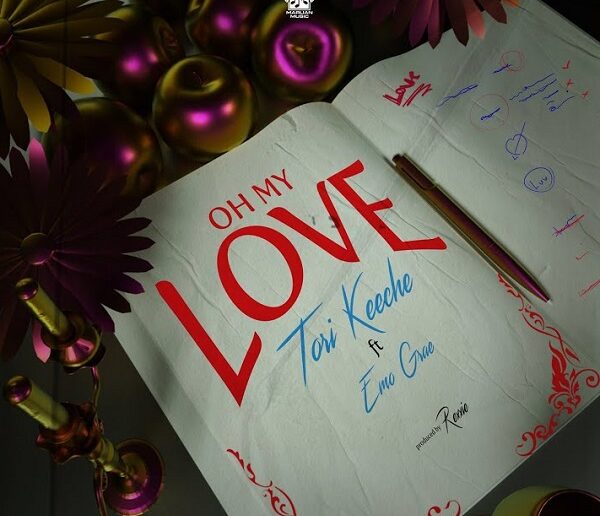 MARUAN
MUSIC
Love
Luv
OH MY
LOVE
Tori Keeche
ft
Emo Grae
produced by Rexxie